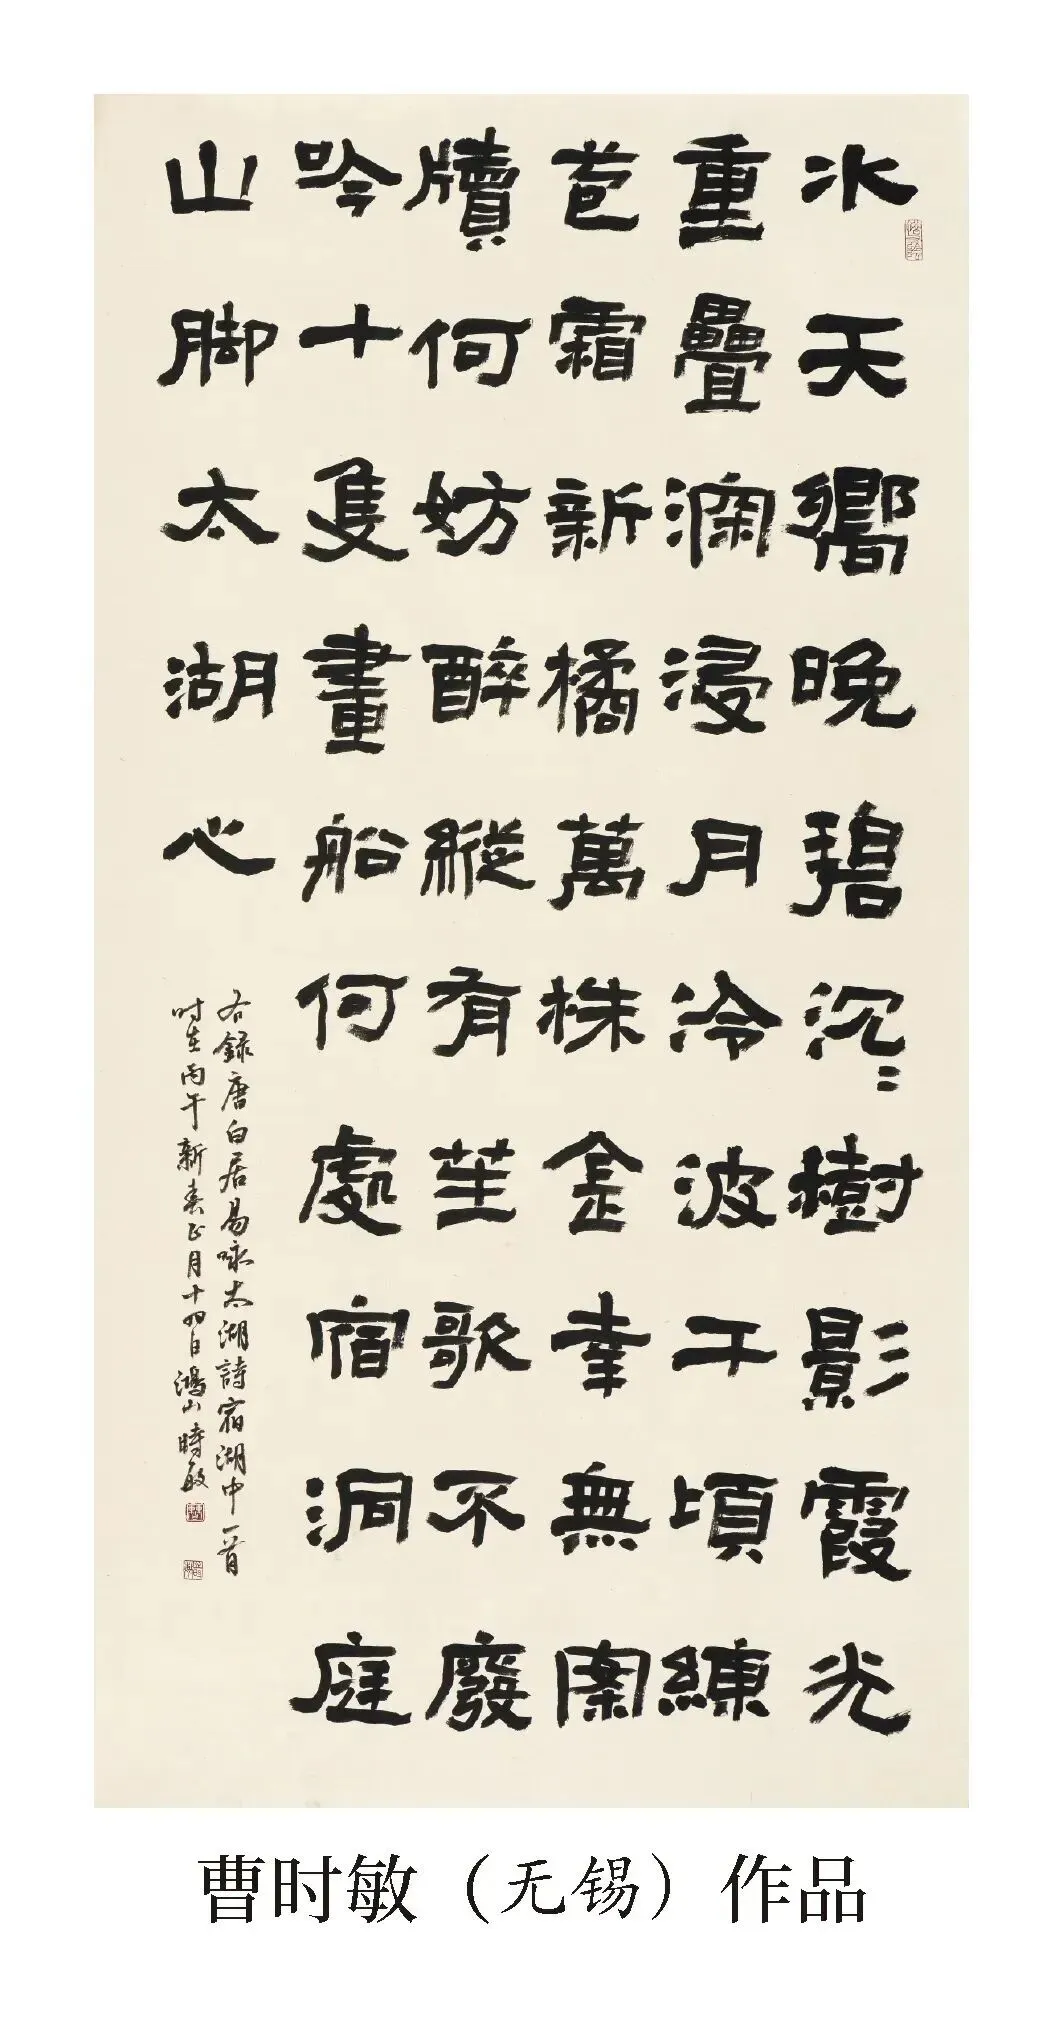 水天嚮晚碧沉〻樹影霞光
重疊深浸月冷波千頃練
苞霜新橘萬株金幸無案
牘何妨醉縱有笙歌不廢
吟十隻畫船何處宿洞庭
山脚太湖心
右錄唐白居易咏太湖詩宿湖中一首
时在丙午新春正月十四日鴻山時敏
曹时敏（无锡）作品